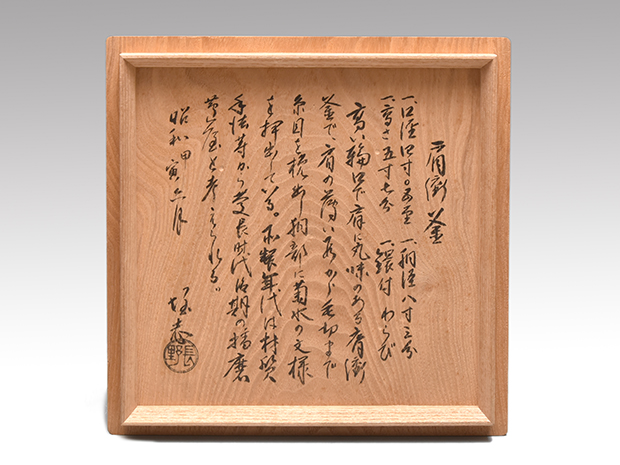 肩衝釜
一、口径四寸〇五厘 一、胴径八寸三分
一、高さ五寸七分 一、鐶付 わらび
高い輪口で肩に丸味のある肩衝
釜で、肩の薄い から毛切まで
糸目を挽出し胴部に菊水の文様
を押出している。 年代は材質
手法等から慶長時代 期の播磨
芦屋と考えられる。
昭和甲寅六月
垤志
長野